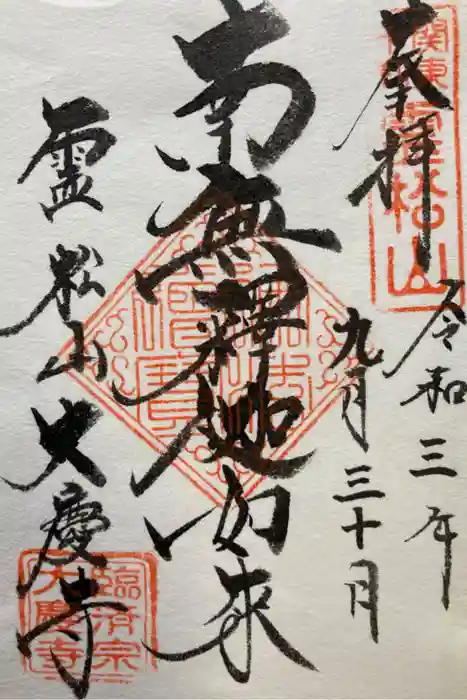 奉拝
令和三年
九月三十月
南無釋迦如来
霊松山大慶寺
関東
霊松山
佛法僧寶
臨済宗
大慶寺